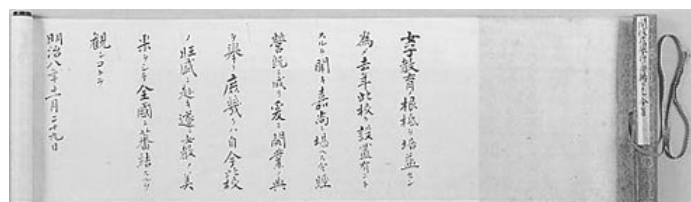 女子教育ノ根柢ヲ培益セン
為ノ去年此校ノ設置有ント
スルヲ聞キ嘉尚ニ堪ヘス経
営既ニ成リ爰ニ開業ノ典
ヲ挙ク庶幾クハ自今此校
ノ旺盛ニ赴キ遂ニ女教ノ美
果ヲシテ全国ニ蕃結スルヲ
観ンコトヲ
明治八年十一月二十九日